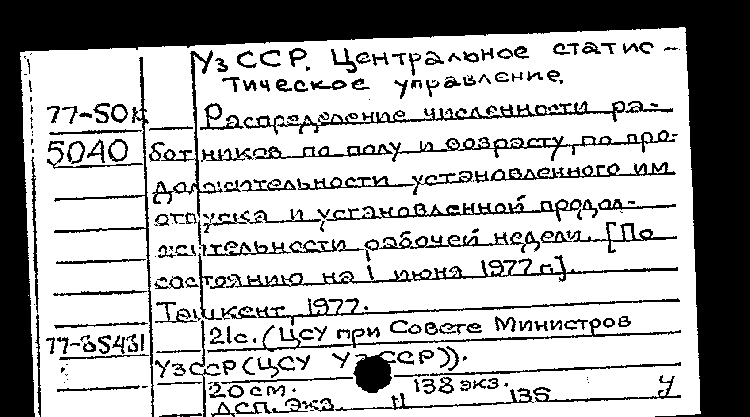 УзССР. Центральное статис-
тическое управление.
77-50к Распределение численности ра-
5040 ботников по полу и возрасту, по про-
должительности установленного им
отпуска и установленной продол-
жительности рабочей недели. [По
состоянию на 1 июня 1977 г.].
Ташкент, 1977.
77-35431 21с. (ЦСУ при Совете Министров
УзССР (ЦСУ УзССР)).
20 см. 138 экз.
ДСП. Экз. 136 У